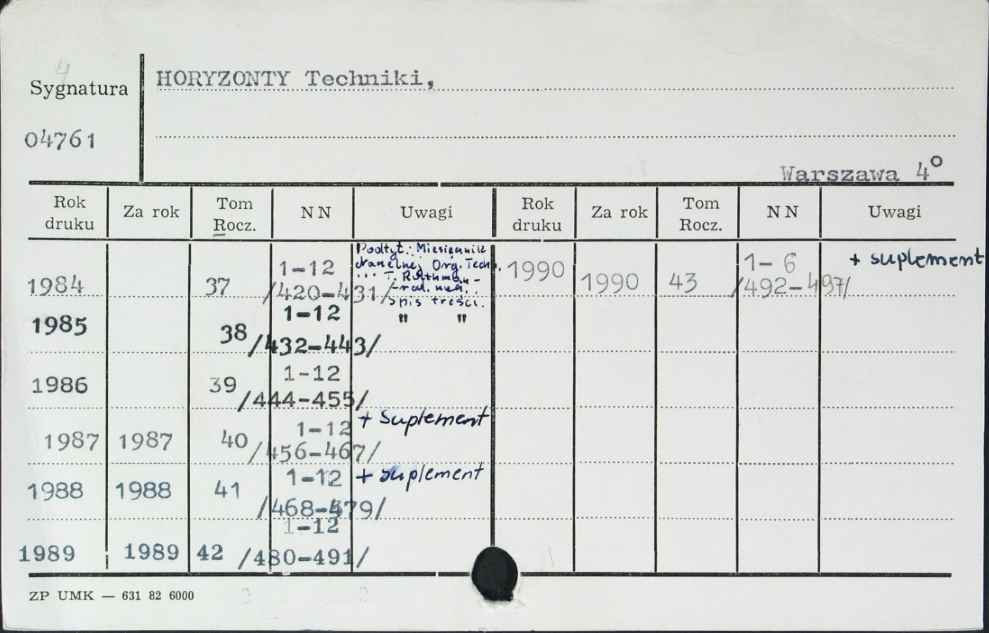 4
Sygnatura
HORYZONTY Techniki,
04761
Warszawa 4°
Rok druku Za rok Tom Rocz. NN Uwagi Rok druku Za rok Tom Rocz. NN Uwagi
1984 37 1-12 /420-431/ Podtyt.: Miesięcznik Org. Techn. ... T. spis treści. 1990 1990 43 1-6 /492-497/ + suplement
1985 38 1-12 /432-443/ " "
1986 39 1-12 /444-455/
1987 1987 40 1-12 /456-467/ + Suplement
1988 1988 41 1-12 /468-479/ + suplement
1989 1989 42 1-12 /480-491/
ZP UMK — 631 82 6000